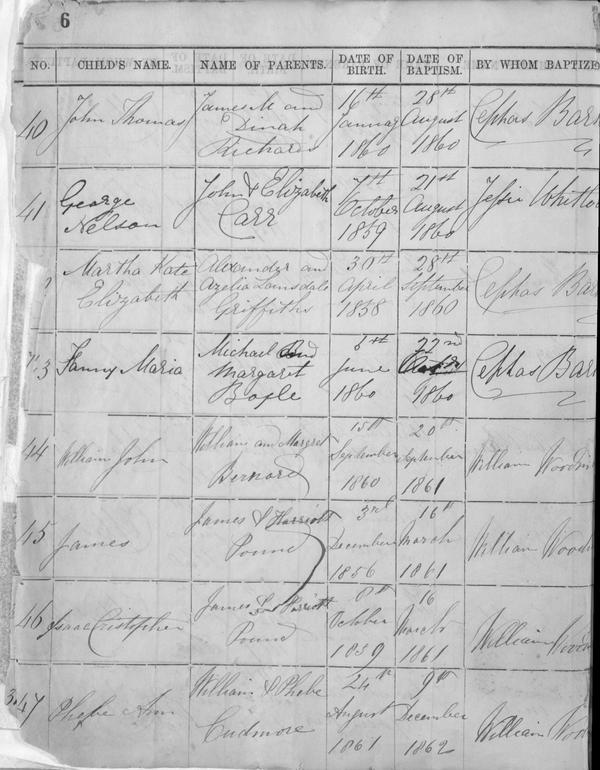 6
NO. CHILD'S NAME. NAME OF PARENTS. DATE OF BIRTH. DATE OF BAPTISM. BY WHOM BAPTIZE
40 John Thomas James M and Dinah Richards 16th January 1860 28th August 1860 Cephas Bar
41 George Nelson John & Elizabeth Carr 7th October 1859 21st August 1860 Jessie Whitto
Martha Kate Elizabeth Alexander and Azelia Lansdale Griffiths 30th April 1858 28th September 1860 Cephas Bar
3 Fanny Maria Michael and Margaret Bogle June 1860 22nd 1860 Cephas Bar
44 William John William and Margret Bernard 15th September 1860 20th September 1861 William Wood
45 James James & Harriott Pound 3rd December 1856 16th March 1861 William Wood
46 Isaac Cristopher James & Harriott Pound 8th October 1859 16 March 1861 William Wood
47 Phebe Ann William & Phebe Cudmore 24th August 1861 9th December 1862 William Wood